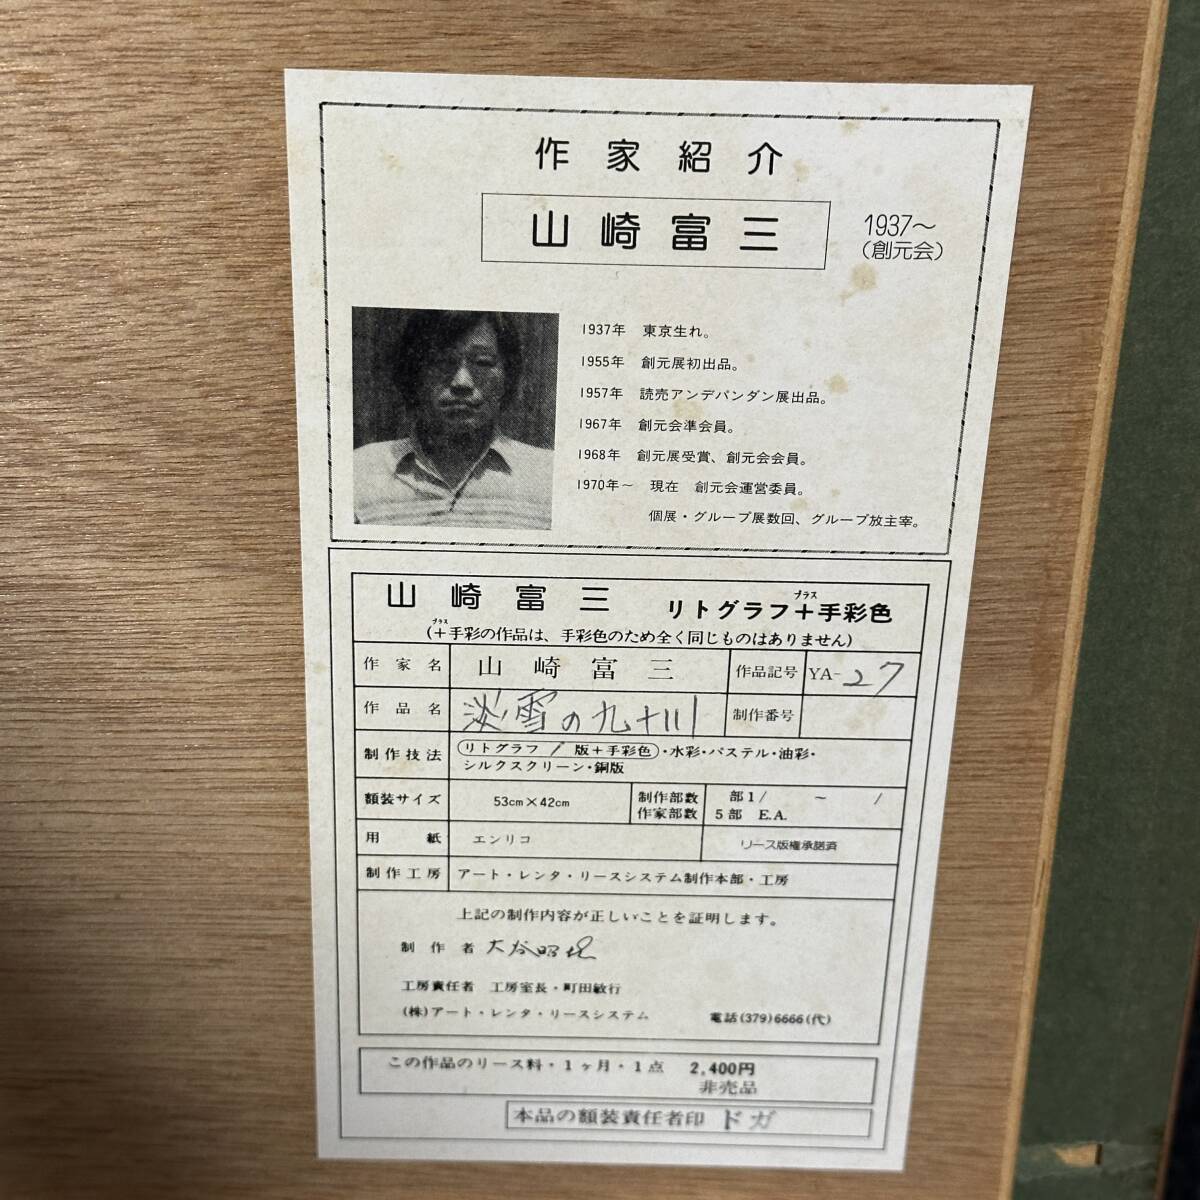 作家紹介
山崎富三
1937〜
(創元会)
1937年 東京生れ。
1955年 創元展初出品。
1957年 読売アンデパンダン展出品。
1967年 創元会準会員。
1968年 創元展受賞、創元会会員。
1970年〜 現在 創元会運営委員。
個展・グループ展数回、グループ放主宰。
山崎富三 リトグラフ+手彩色
プラス
(+手彩の作品は、手彩色のため全く同じものはありません)
プラス
作家名 山崎富三 作品記号 YA-27
作品名 淡雪の九十川 制作番号
制作技法 (リトグラフ / 版+手彩色)・水彩・パステル・油彩・
シルクスクリーン・銅版
額装サイズ 53cm×42cm 制作部数 部1/ 〜 /
作家部数 5部 E.A.
用紙 エンリコ リース版権承諾済
制作工房 アート・レンタ・リースシステム制作本部・工房
上記の制作内容が正しいことを証明します。
制作者 大谷昭
工房責任者 工房室長・町田敏行
(株)アート・レンタ・リースシステム 電話(379)6666(代)
この作品のリース料・1ヶ月・1点 2,400円
非売品
本品の額装責任者印 ドガ